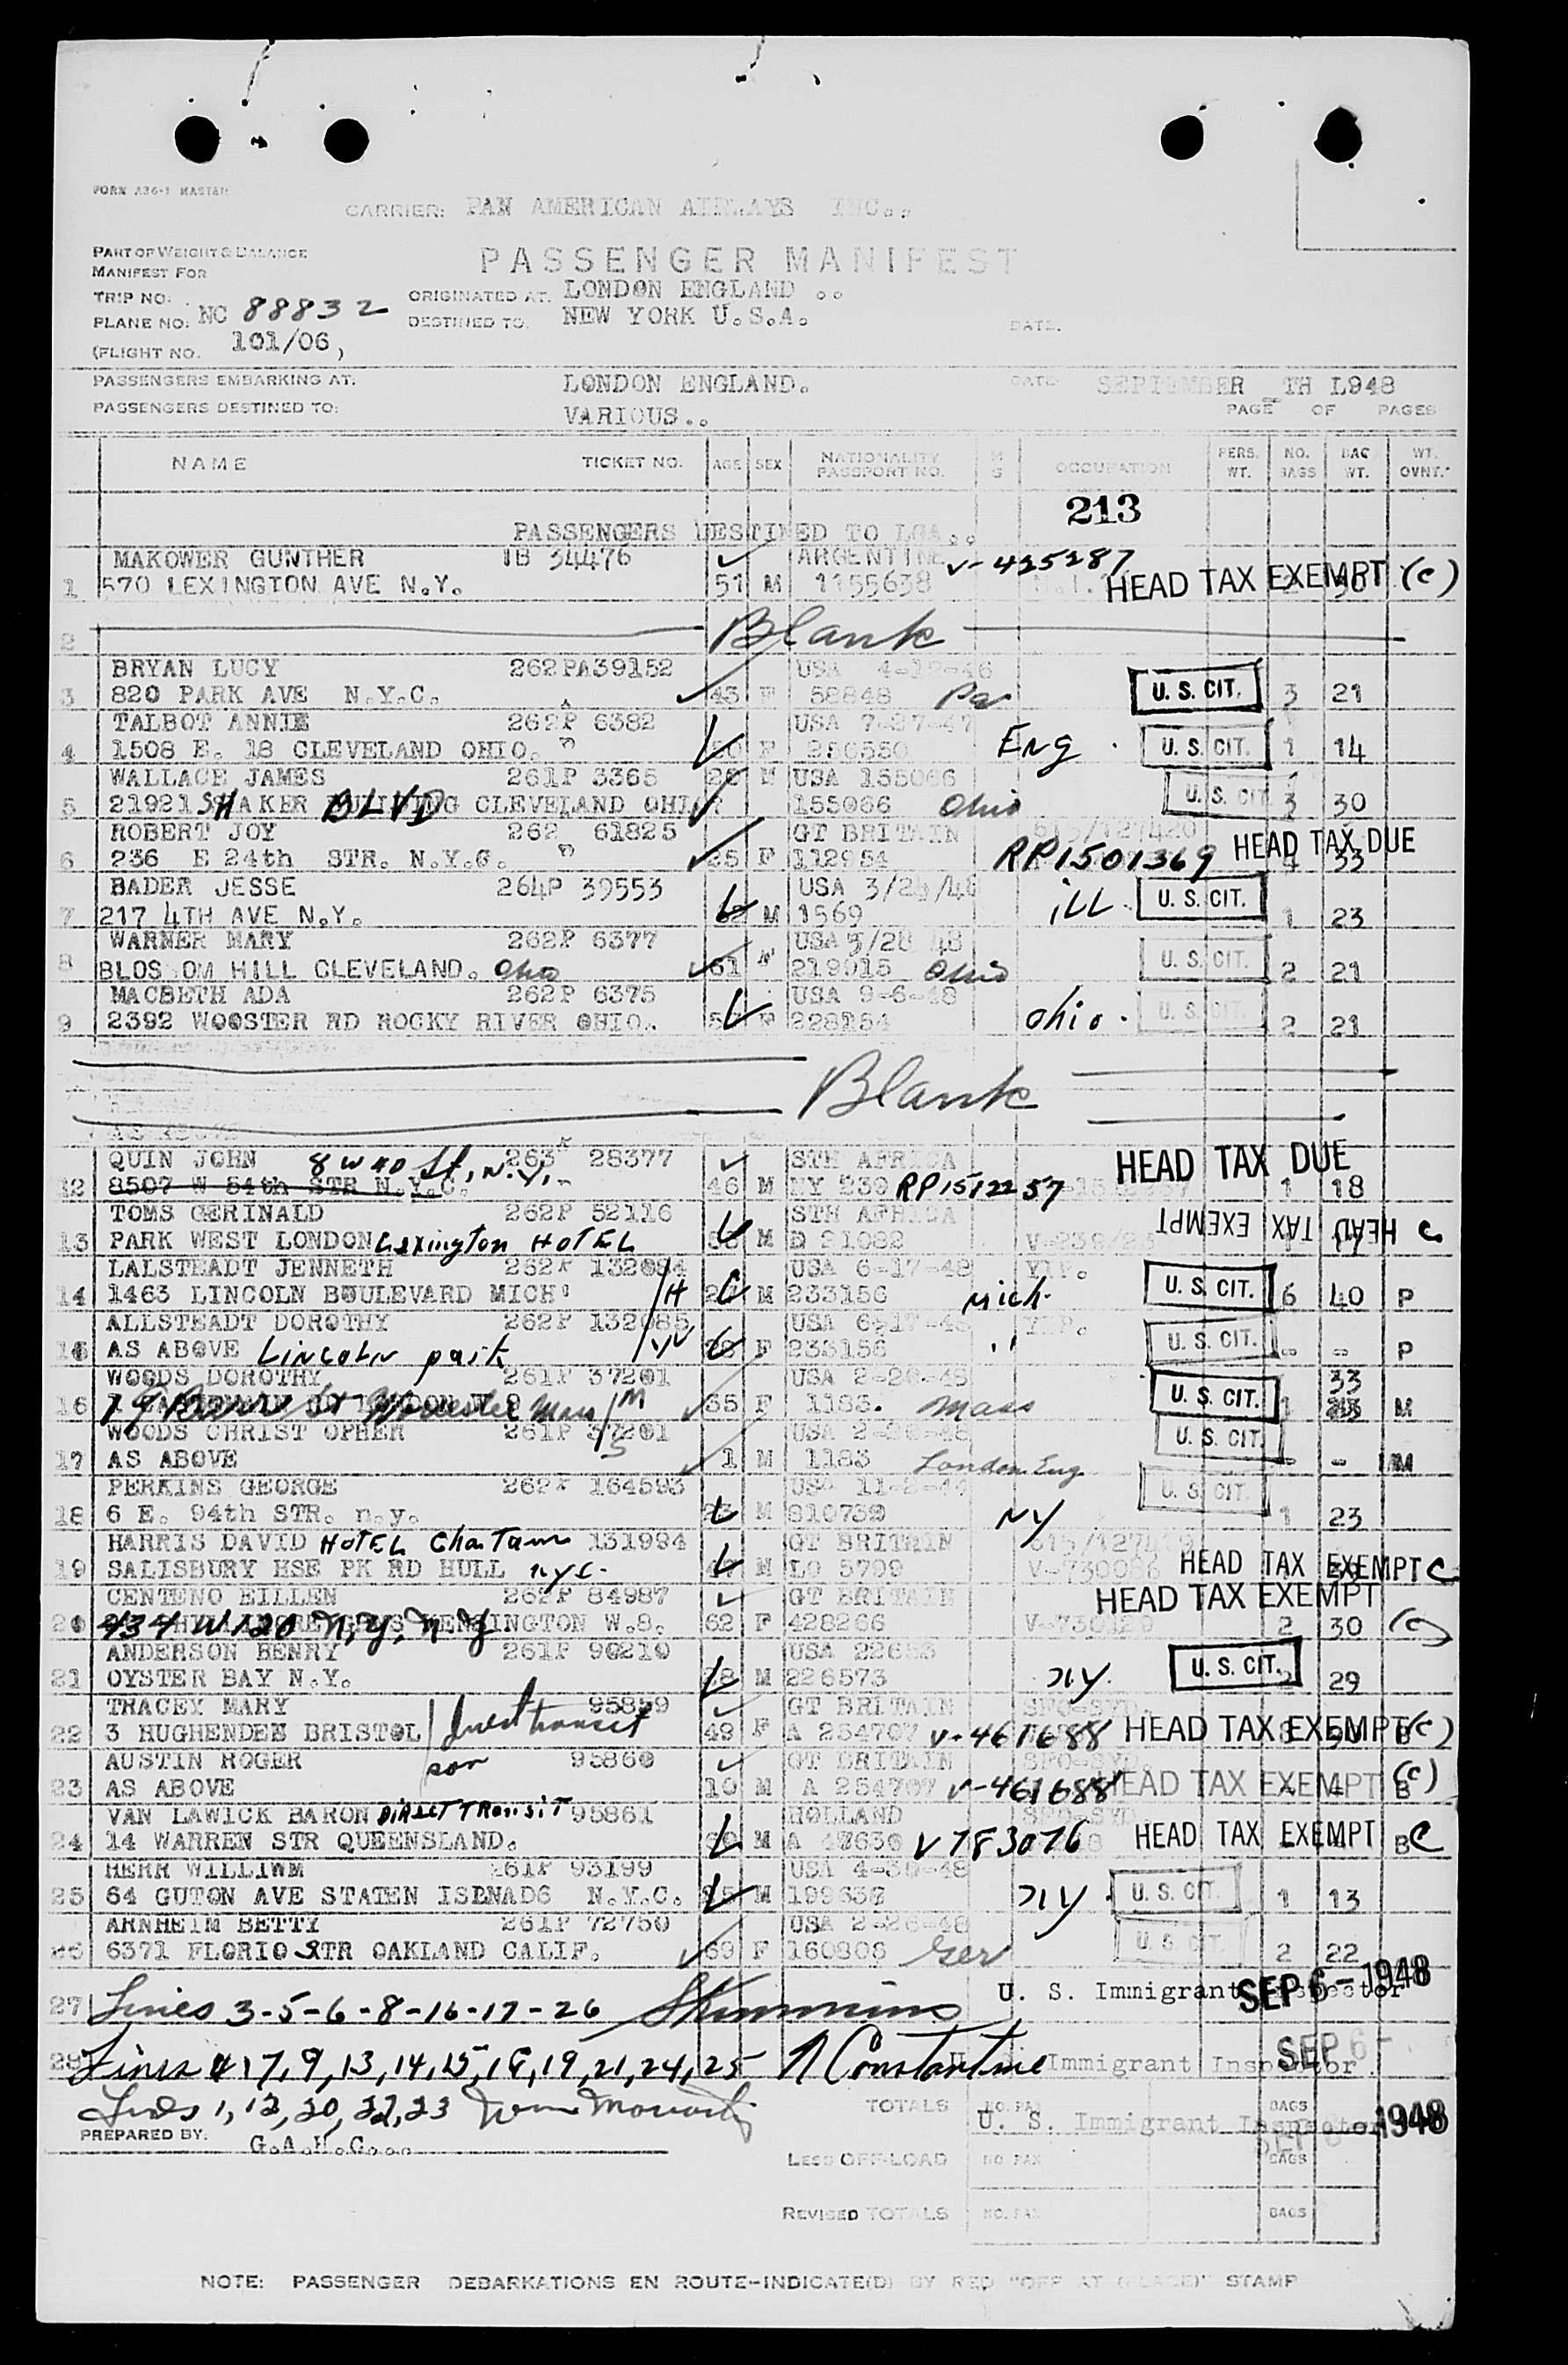 FORM A36-1 MASTER
CARRIER: PAN AMERICAN AIRWAYS INC..
PART OF WEIGHT & BALANCE
MANIFEST FOR
PASSENGER MANIFEST
TRIP NO:
ORIGINATED AT. LONDON ENGLAND ..
PLANE NO: NC 88832
DESTINED TO. NEW YORK U.S.A.
DATE.
(FLIGHT NO. 101/06 )
PASSENGERS EMBARKING AT. LONDON ENGLAND. DATE SEPTEMBER TH L948
PASSENGERS DESTINED TO: VARIOUS.. PAGE OF PAGES
NAME TICKET NO. AGE SEX NATIONALITY PASSPORT NO. M S OCCUPATION PERS. WT. NO. BAGS BAG WT. WT. OVNT.
213
PASSENGERS DESTINED TO LGA..
MAKOWER GUNTHER IB 34476 ARGENTINE V-425287
1 570 LEXINGTON AVE N.Y. 51 M 1155638 HEAD TAX EXEMPT (C)
2 Blank
BRYAN LUCY 262PA39152 USA 4-12-46
3 820 PARK AVE N.Y.C. 43 F 58848 Pa U. S. CIT. 3 21
TALBOT ANNIE 262P 6382 USA 7-27-47
4 1508 E. 18 CLEVELAND OHIO. F Eng U. S. CIT. 1 14
WALLACE JAMES 261P 3365 M USA 155066
5 21921 SHAKER BLVD CLEVELAND OHIO 155066 Ohio U. S. CIT. 3 30
ROBERT JOY 262 61825 GT BRITAIN
6 236 E 24th STR. N.Y.C. 25 F 112954 RP1501369 HEAD TAX DUE 33
BADER JESSE 264P 39553 USA
7 217 4TH AVE N.Y. M 1569 ill U. S. CIT. 1 23
WARNER MARY 262P 6377 USA 5/28 48
8 BLOS OM HILL CLEVELAND. Ohio 61 F 219015 Ohio U. S. CIT. 2 21
MACBETH ADA 262P 6375 USA 9-6-48
9 2392 WOOSTER RD ROCKY RIVER OHIO. F 228154 Ohio. U. S. CIT. 2 21
Blank
QUIN JOHN 8 W 40 St, N.Y. 263 28377 STH AFRICA HEAD TAX DUE
12 8507 W 54th STR N.Y.C. 46 M NY 239 RP1512257 1 18
TOMS GERINALD 262P 52116 STH AFRICA
13 PARK WEST LONDON Lexington HOTEL M D 21082 HEAD TAX EXEMPT C
LALSTEADT JENNETH 262P 132084 USA 6-17-48 YIP.
14 1463 LINCOLN BOULEVARD MICH /H M 233156 Mich. U. S. CIT. 6 40 P
ALLSTEADT DOROTHY 262P 132085 USA 6-17-48 YIP.
15 AS ABOVE LINCOLN park /W F 233156 " U. S. CIT. - - P
WOODS DOROTHY 261P 37201 USA 2-26-48 33
16 Worcester Mass /M 35 F 1183. Mass U. S. CIT. 1 M
WOODS CHRIST OPHER 261P 37201 /S USA 2-26-48
17 AS ABOVE 1 M 1183 London Eng U. S. CIT. - - M
PERKINS GEORGE 262P 164593 USA
18 6 E. 94th STR. n.y. M 810739 NY U. S. CIT. 1 23
HARRIS DAVID HOTEL Chatam 131994 GT BRITAIN
19 SALISBURY HSE PK RD HULL nyc. M LO 5799 HEAD TAX EXEMPT C
CENTENO EILLEN 262P 84987 GT BRITAIN HEAD TAX EXEMPT
20 434 W 120 N.Y. N.Y KENSINGTON W.8. 62 F 428266 2 30 (C)
ANDERSON HENRY 261P 90210 USA
21 OYSTER BAY N.Y. M 226573 NY. U. S. CIT. 2 29
TRACEY MARY 95859 GT BRITAIN SFO-SYD.
22 3 HUGHENDEN BRISTOL direct transit 49 F A 254707 V-461688 HEAD TAX EXEMPT (C)
AUSTIN ROGER son 95860 GT BRITAIN SFO-SYD.
23 AS ABOVE 10 M A 254707 V-461688 HEAD TAX EXEMPT B (C)
VAN LAWICK BARON DIRECT TRANSIT 95861 HOLLAND SFO-SYD
24 14 WARREN STR QUEENSLAND. M A V783076 HEAD TAX EXEMPT B C
HERR WILLIWM 261P 93199 USA 4-30-48
25 64 GUTON AVE STATEN ISLNADS N.Y.C. M 199637 NY U. S. CIT. 1 13
ARNHEIM BETTY 261P 72750 USA 2-26-48
26 6371 FLORIO STR OAKLAND CALIF. 69 F 160808 Ger U. S. CIT. 2 22
27 Lines 3-5-6-8-16-17-26 U. S. Immigrant Inspector SEP 6 - 1948
28 Lines 4, 7, 9, 13, 14, 15, 18, 19, 21, 24, 25 N Constantine U. S. Immigrant Inspector SEP 6 -
Lines 1, 12, 20, 22, 23 Wm Moriarty TOTALS NO. PAX BAGS
U. S. Immigrant Inspector 1948
PREPARED BY: G.A.H.C...
LESS OFF-LOAD NO PAX BAGS
REVISED TOTALS NO. PAX BAGS
NOTE: PASSENGER DEBARKATIONS EN ROUTE-INDICATE(D) BY RED "OFF AT (PLACE)" STAMP